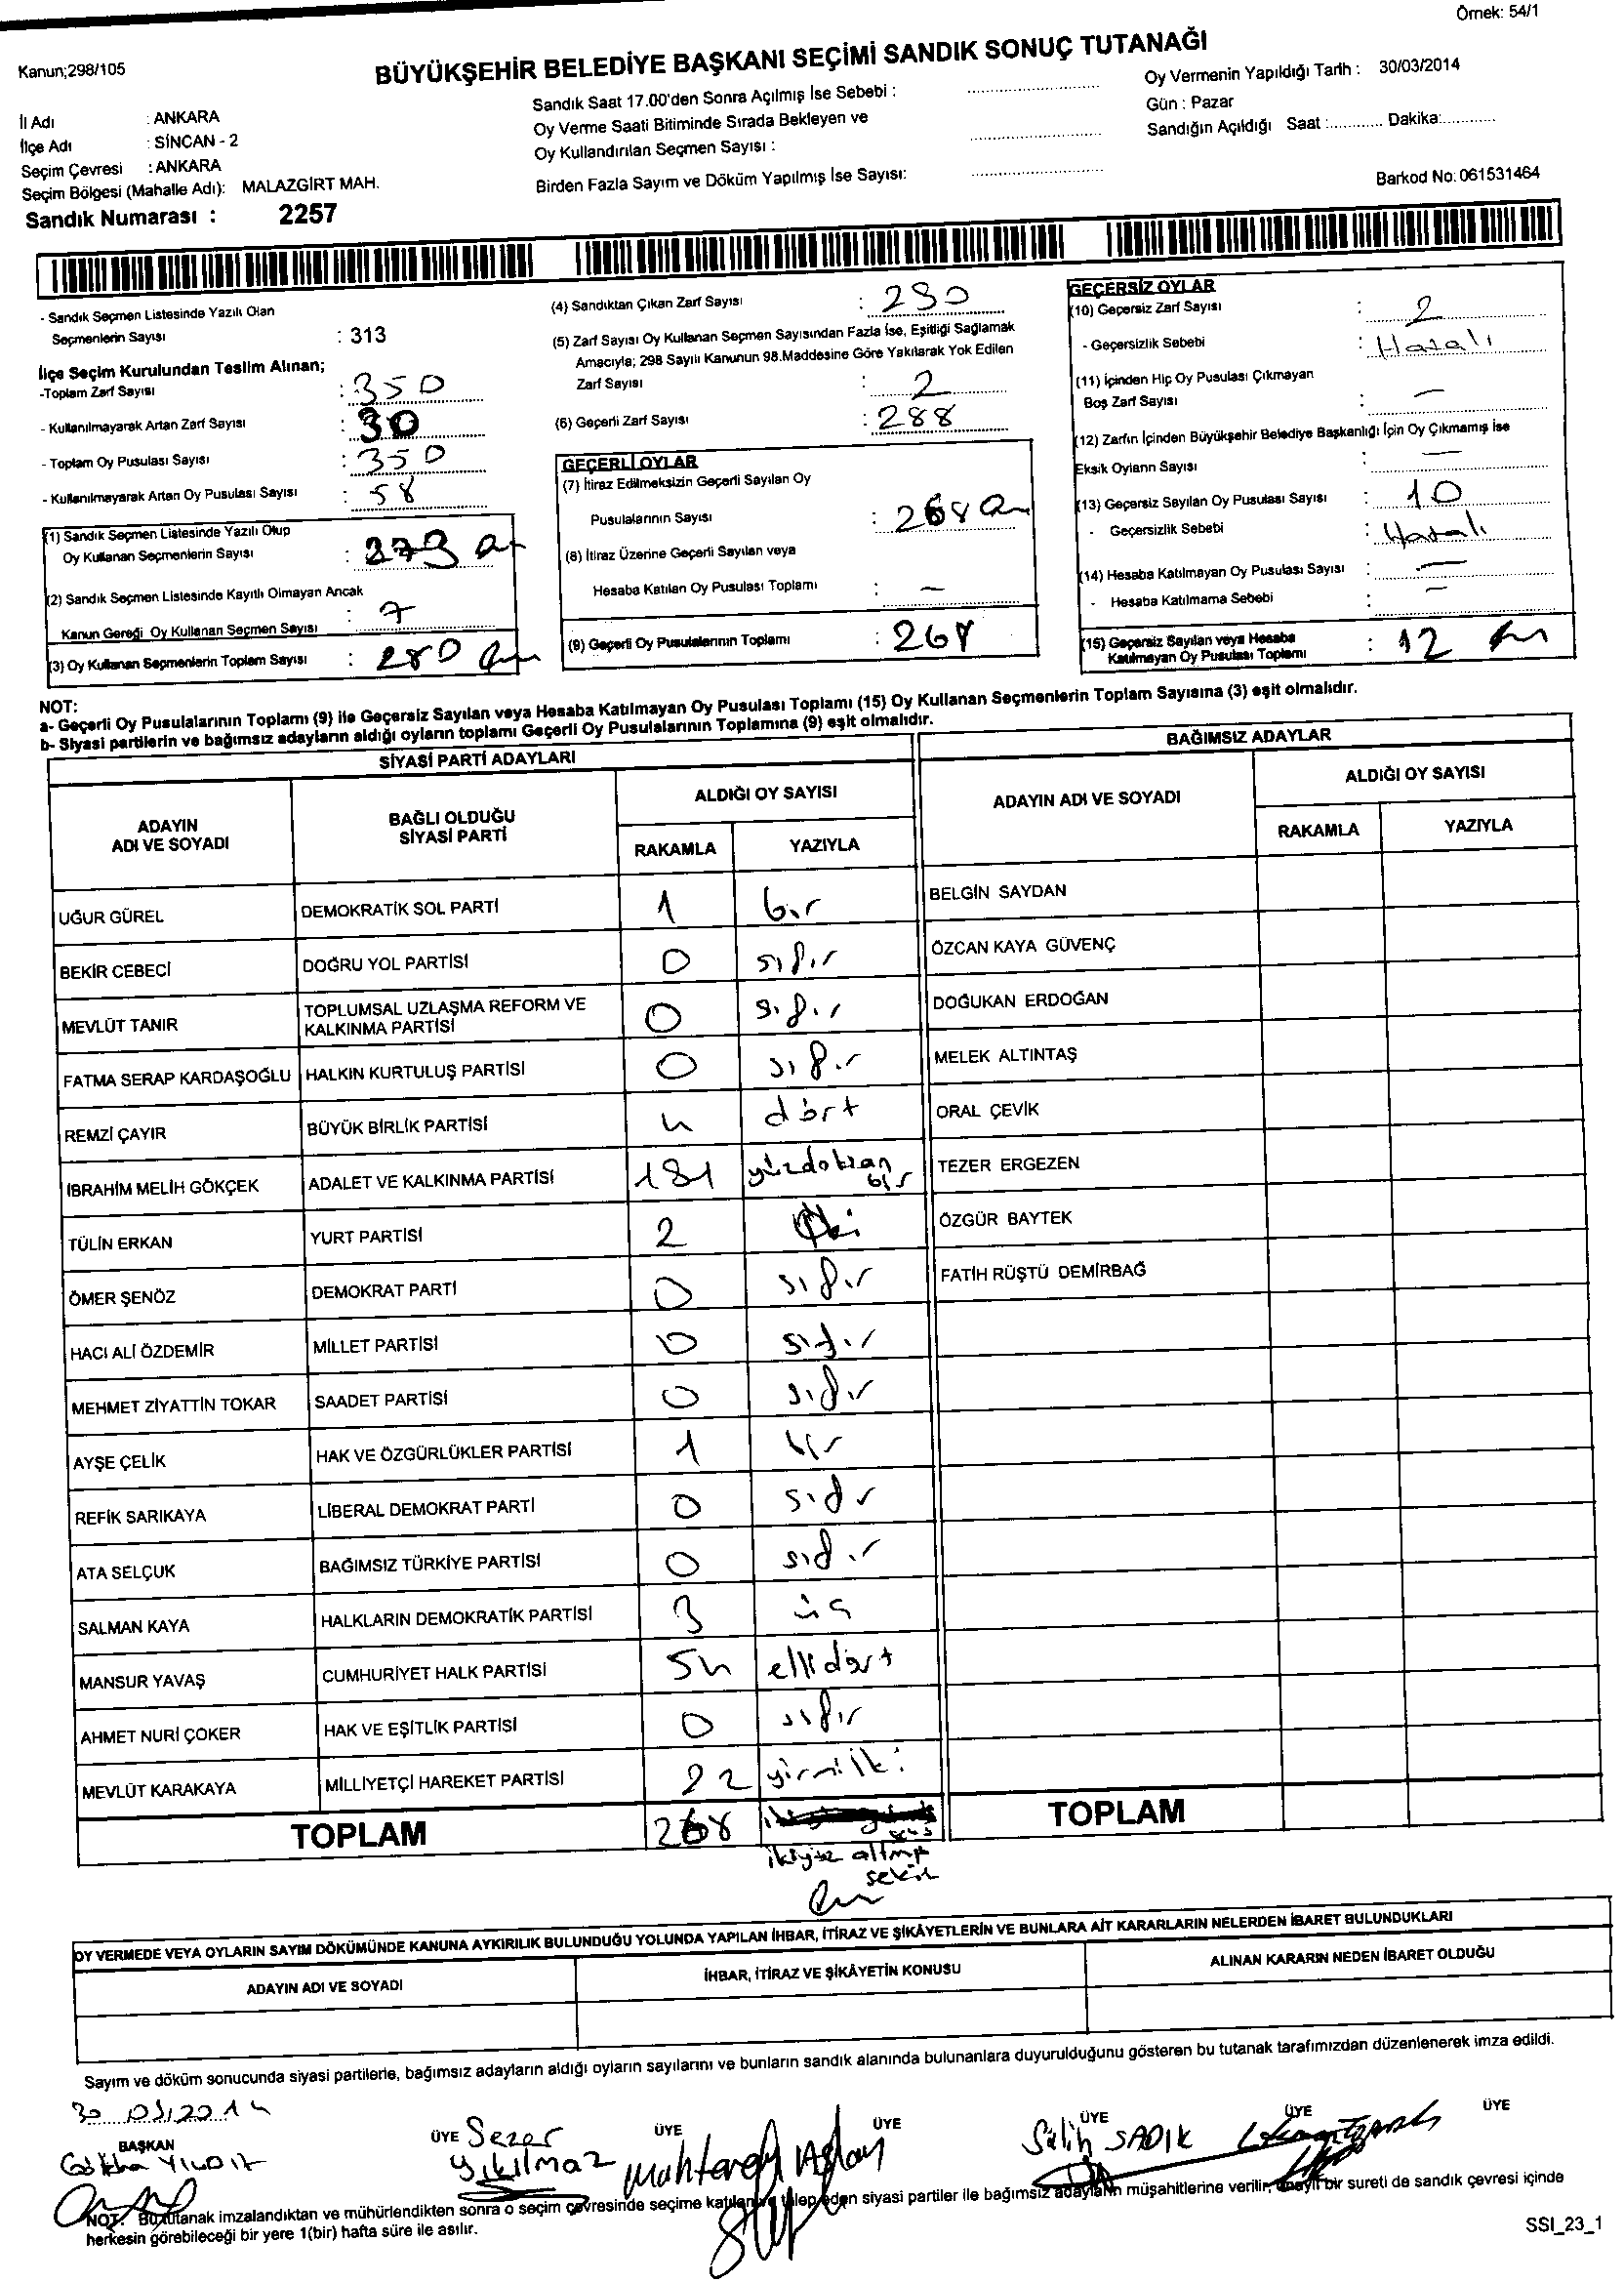 Örnek: 54/1
Kanun;298/105
BÜYÜKŞEHİR BELEDİYE BAŞKANI SEÇİMİ SANDIK SONUÇ TUTANAĞI
İl Adı : ANKARA
İlçe Adı : SİNCAN - 2
Seçim Çevresi : ANKARA
Seçim Bölgesi (Mahalle Adı): MALAZGİRT MAH.
Sandık Numarası : 2257
Sandık Saat 17.00'den Sonra Açılmış İse Sebebi :
Oy Verme Saati Bitiminde Sırada Bekleyen ve
Oy Kullandırılan Seçmen Sayısı :
Birden Fazla Sayım ve Döküm Yapılmış İse Sayısı:
Oy Vermenin Yapıldığı Tarih : 30/03/2014
Gün : Pazar
Sandığın Açıldığı Saat :............ Dakika:............
Barkod No: 061531464
- Sandık Seçmen Listesinde Yazılı Olan
Seçmenlerin Sayısı : 313
İlçe Seçim Kurulundan Teslim Alınan;
-Toplam Zarf Sayısı : 350
- Kullanılmayarak Artan Zarf Sayısı : 30
- Toplam Oy Pusulası Sayısı : 350
- Kullanılmayarak Artan Oy Pusulası Sayısı : 58
(1) Sandık Seçmen Listesinde Yazılı Olup
Oy Kullanan Seçmenlerin Sayısı : 273
(2) Sandık Seçmen Listesinde Kayıtlı Olmayan Ancak
Kanun Gereği Oy Kullanan Seçmen Sayısı : 7
(3) Oy Kullanan Seçmenlerin Toplam Sayısı : 280
(4) Sandıktan Çıkan Zarf Sayısı : 290
(5) Zarf Sayısı Oy Kullanan Seçmen Sayısından Fazla İse, Eşitliği Sağlamak
Amacıyla; 298 Sayılı Kanunun 98.Maddesine Göre Yakılarak Yok Edilen
Zarf Sayısı : 2
(6) Geçerli Zarf Sayısı : 288
GEÇERLİ OYLAR
(7) İtiraz Edilmeksizin Geçerli Sayılan Oy
Pusulalarının Sayısı : 268
(8) İtiraz Üzerine Geçerli Sayılan veya
Hesaba Katılan Oy Pusulası Toplamı : —
(9) Geçerli Oy Pusulalarının Toplamı : 268
GEÇERSİZ OYLAR
(10) Geçersiz Zarf Sayısı : 2
- Geçersizlik Sebebi : Hatalı
(11) İçinden Hiç Oy Pusulası Çıkmayan
Boş Zarf Sayısı : —
(12) Zarfın İçinden Büyükşehir Belediye Başkanlığı İçin Oy Çıkmamış İse
Eksik Oyların Sayısı : —
(13) Geçersiz Sayılan Oy Pusulası Sayısı : 10
- Geçersizlik Sebebi : Hatalı
(14) Hesaba Katılmayan Oy Pusulası Sayısı : —
- Hesaba Katılmama Sebebi : —
(15) Geçersiz Sayılan veya Hesaba
Katılmayan Oy Pusulası Toplamı : 12
NOT:
a- Geçerli Oy Pusulalarının Toplamı (9) ile Geçersiz Sayılan veya Hesaba Katılmayan Oy Pusulası Toplamı (15) Oy Kullanan Seçmenlerin Toplam Sayısına (3) eşit olmalıdır.
b- Siyasi partilerin ve bağımsız adayların aldığı oyların toplamı Geçerli Oy Pusulalarının Toplamına (9) eşit olmalıdır.
SİYASİ PARTİ ADAYLARI
ADAYIN ADI VE SOYADI
BAĞLI OLDUĞU SİYASİ PARTİ
ALDIĞI OY SAYISI
RAKAMLA YAZIYLA
UĞUR GÜREL DEMOKRATİK SOL PARTİ 1 bir
BEKİR CEBECİ DOĞRU YOL PARTİSİ 0 sıfır
MEVLÜT TANIR TOPLUMSAL UZLAŞMA REFORM VE KALKINMA PARTİSİ 0 sıfır
FATMA SERAP KARDAŞOĞLU HALKIN KURTULUŞ PARTİSİ 0 sıfır
REMZİ ÇAYIR BÜYÜK BİRLİK PARTİSİ 4 dört
İBRAHİM MELİH GÖKÇEK ADALET VE KALKINMA PARTİSİ 181 yüzdoksan bir
TÜLİN ERKAN YURT PARTİSİ 2 iki
ÖMER ŞENÖZ DEMOKRAT PARTİ 0 sıfır
HACI ALİ ÖZDEMİR MİLLET PARTİSİ 0 sıfır
MEHMET ZİYATTİN TOKAR SAADET PARTİSİ 0 sıfır
AYŞE ÇELİK HAK VE ÖZGÜRLÜKLER PARTİSİ 1 bir
REFİK SARIKAYA LİBERAL DEMOKRAT PARTİ 0 sıfır
ATA SELÇUK BAĞIMSIZ TÜRKİYE PARTİSİ 0 sıfır
SALMAN KAYA HALKLARIN DEMOKRATİK PARTİSİ 3 üç
MANSUR YAVAŞ CUMHURİYET HALK PARTİSİ 54 ellidört
AHMET NURİ ÇOKER HAK VE EŞİTLİK PARTİSİ 0 sıfır
MEVLÜT KARAKAYA MİLLİYETÇİ HAREKET PARTİSİ 22 yirmiiki
TOPLAM 268
ikiyüz altmış
sekiz
BAĞIMSIZ ADAYLAR
ADAYIN ADI VE SOYADI
ALDIĞI OY SAYISI
RAKAMLA YAZIYLA
BELGİN SAYDAN
ÖZCAN KAYA GÜVENÇ
DOĞUKAN ERDOĞAN
MELEK ALTINTAŞ
ORAL ÇEVİK
TEZER ERGEZEN
ÖZGÜR BAYTEK
FATİH RÜŞTÜ DEMİRBAĞ
TOPLAM
OY VERMEDE VEYA OYLARIN SAYIM DÖKÜMÜNDE KANUNA AYKIRILIK BULUNDUĞU YOLUNDA YAPILAN İHBAR, İTİRAZ VE ŞİKÂYETLERİN VE BUNLARA AİT KARARLARIN NELERDEN İBARET BULUNDUKLARI
ADAYIN ADI VE SOYADI İHBAR, İTİRAZ VE ŞİKÂYETİN KONUSU ALINAN KARARIN NEDEN İBARET OLDUĞU
Sayım ve döküm sonucunda siyasi partilerle, bağımsız adayların aldığı oyların sayılarını ve bunların sandık alanında bulunanlara duyurulduğunu gösteren bu tutanak tarafımızdan düzenlenerek imza edildi.
30.03.2014
BAŞKAN ÜYE ÜYE ÜYE ÜYE ÜYE ÜYE
Gökhan YILDIZ
Sezer
Yıkılmaz
Muhterem Aslan
Salih SADIK
NOT: Bu tutanak imzalandıktan ve mühürlendikten sonra o seçim çevresinde seçime katılan ve talep eden siyasi partiler ile bağımsız adayların müşahitlerine verilir, onaylı bir sureti de sandık çevresi içinde
herkesin görebileceği bir yere 1(bir) hafta süre ile asılır.
SSI_23_1